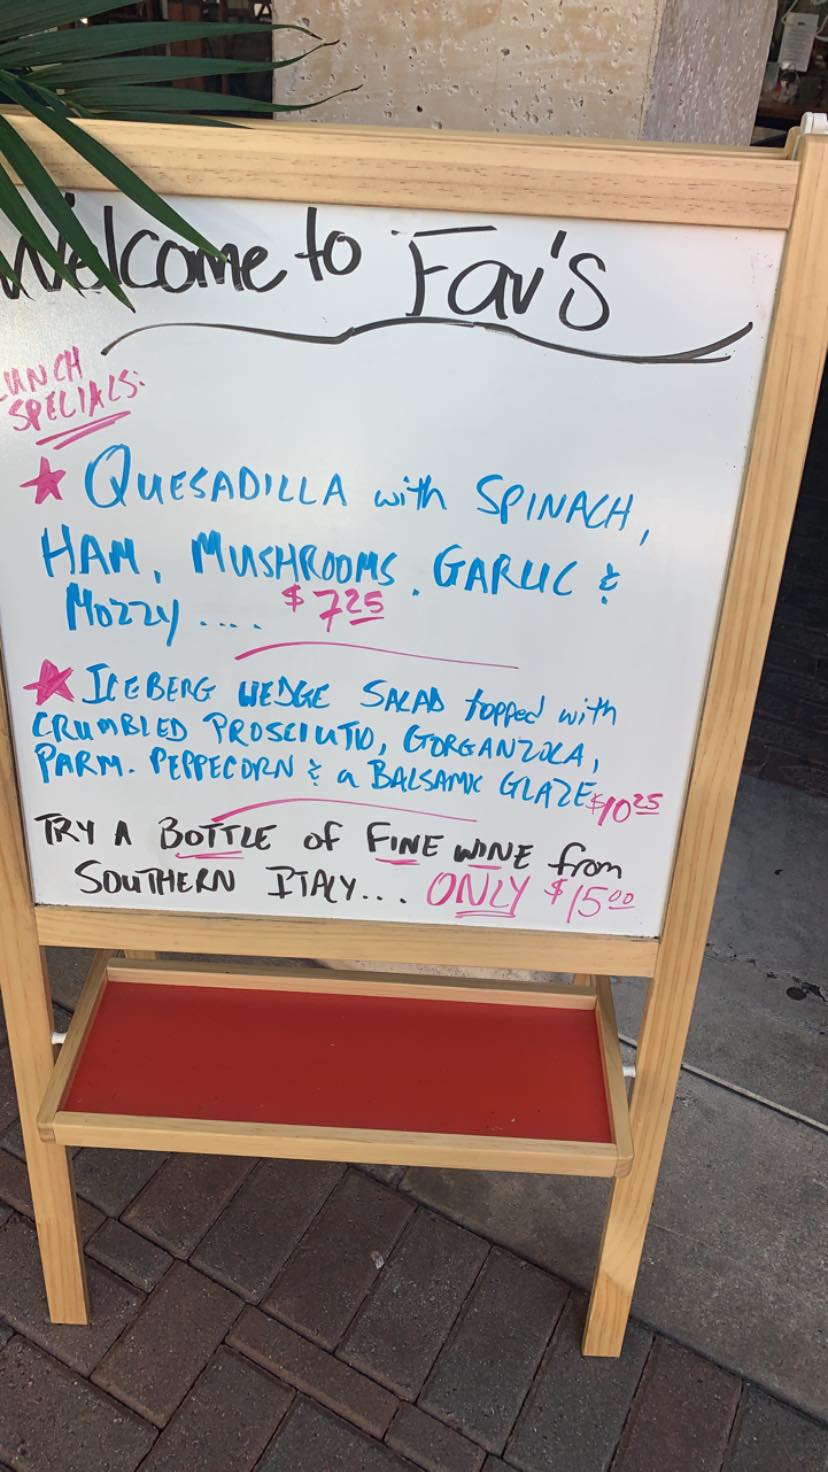 Welcome to Fav's
LUNCH
SPECIALS:
QUESADILLA with SPINACH,
HAM, MUSHROOMS, GARLIC &
MOZZY.... $7 25
ICEBERG WEDGE SALAD topped with
CRUMBLED PROSCIUTTO, GORGANZOLA,
PARM. PEPPECORN & a BALSAMIC GLAZE $10 25
TRY A BOTTLE of FINE WINE from
SOUTHERN ITALY... ONLY $15 00